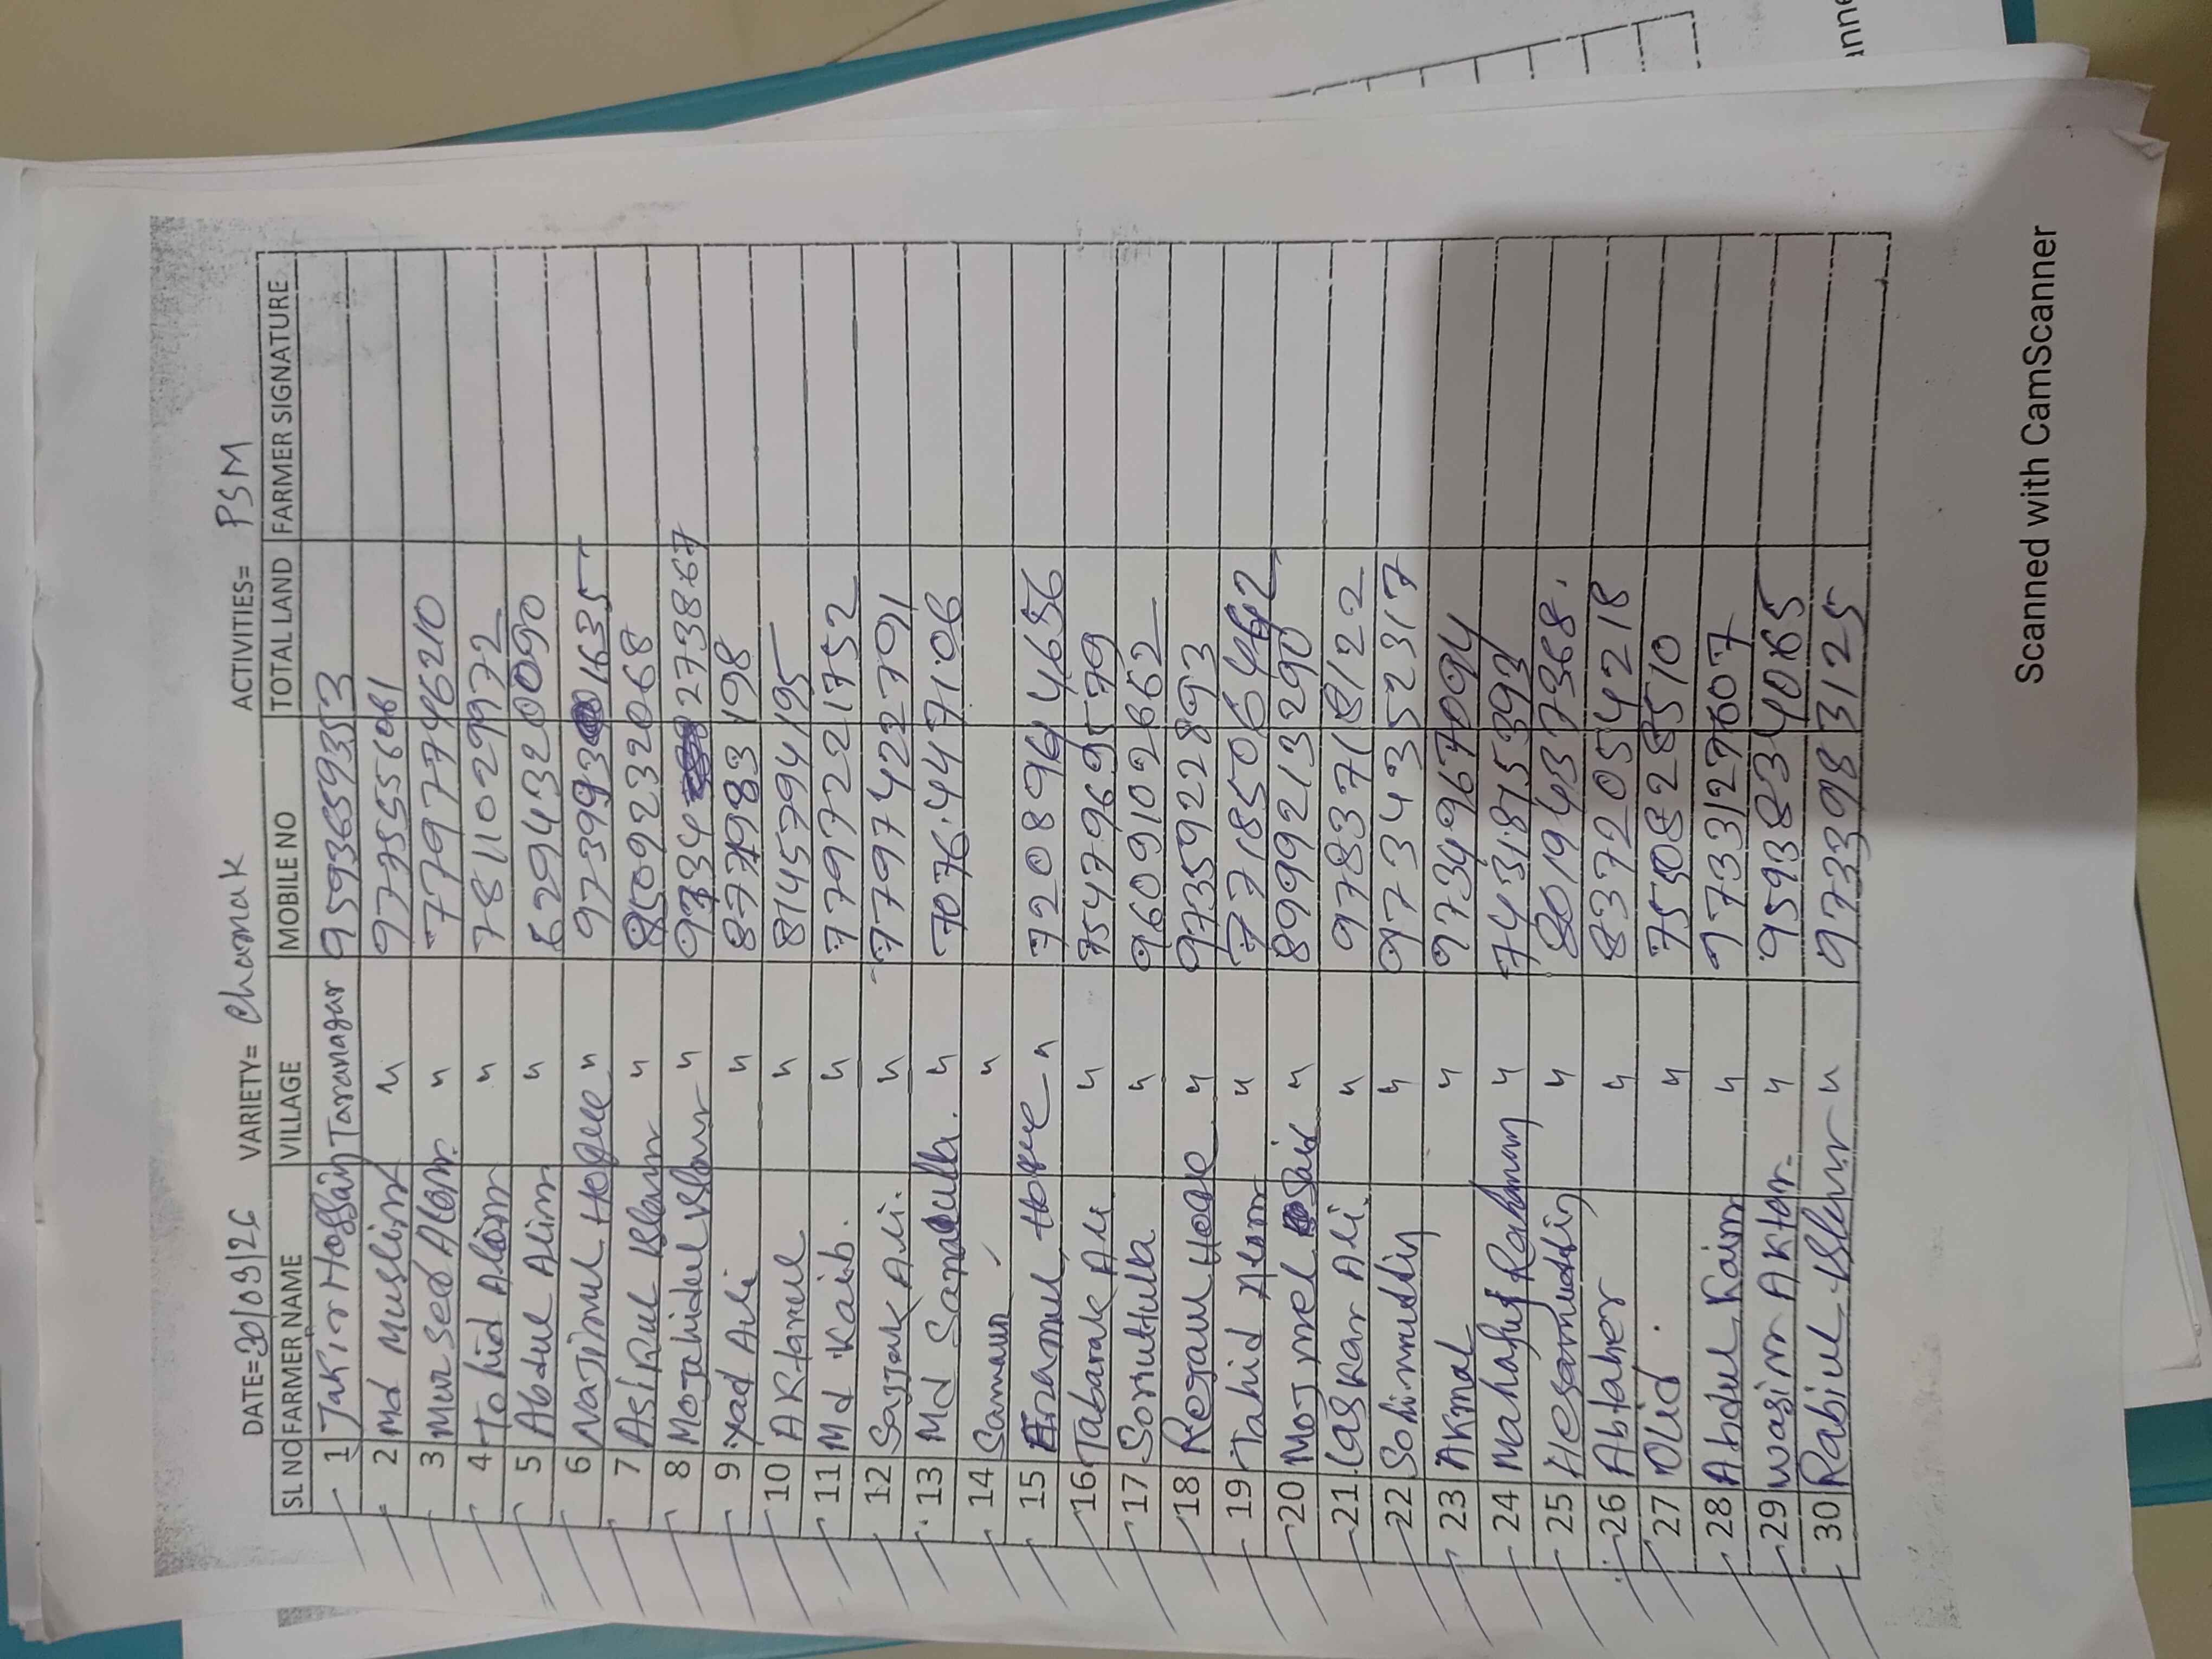 DATE=30/03/26 VARIETY= Chamak ACTIVITIES= PSM
SL NO FARMER NAME VILLAGE MOBILE NO TOTAL LAND FARMER SIGNATURE
1 Jakir Hossain Taranagar 9593659353
2 Md Muslim " 9775556061
3 Mursed Alom. " 7797746210
4 Tohid Alom " 7811029972
5 Abdul Alim " 6294320090
6 Najimul Hoque " 97399301635
7 Asikul Islam " 8509232068
8 Mojahidul Islam " 9734 273867
9 Yad Ali " 877983198
10 Aktarul " 8145794195
11 Md Kaib. " 7797221752
12 Sajjak Ali. " 7797422791
13 Md Sanaulla. " 7076447106
14 Samaun "
15 Enamul Hoque " 7208964656
16 Tabarak Ali " 7547969579
17 Sonutulla " 9609102662
18 Rejaul Hoque " 9735922893
19 Tahid Alom " 7718506462
20 Mojmel " 8999213290
21 Laskar Ali. " 9783718122
22 Sohimuddin " 9734352317
23 Akmal " 9734967094
24 Mahafuj Rahaman " 7431875393
25 Hesamuddin " 8019437368.
26 Abtaher " 8372054218
27 Olid. " 7550828510
28 Abdul Kaim " 9733127607
29 Wasim Aktar " 9593834065
30 Rabiul Islam " 9733983125
Scanned with CamScanner
anne